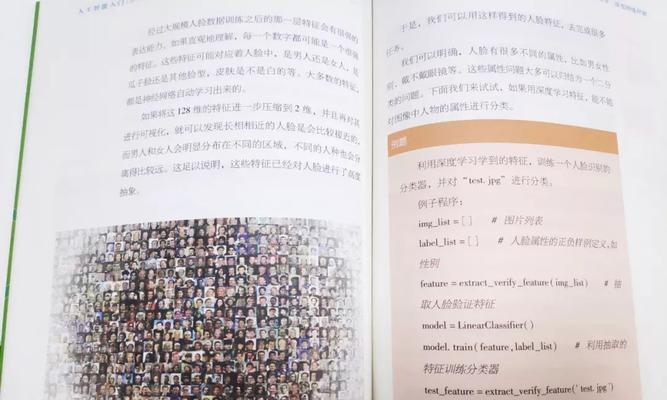 人工智能入门
经过大规模人脸数据训练之后的那一层特征会有很强的
表达能力。如果直观地理解，每一个数字都可能是一个很强
的特征。这些特征可能对应着人脸中，是男人还是女人，是
瓜子脸还是其他脸型，皮肤是不是白的等。大多数的特征，
都是神经网络自动学习出来的。
如果将这128维的特征进一步压缩到2维，并且再对其
进行可视化，就可以发现长相相近的人脸是会比较接近的，
而男人和女人会明显分布在不同的区域，不同的人种也会分
离得比较远。这足以说明，这些特征已经对人脸进行了高度
抽象。
于是，我们可以用这样得到的人脸特征，去完成很多
任务。
我们可以明确，人脸有很多不同的属性，比如男女性
别、戴不戴眼镜等。这些属性问题大多可以归结为一个二分
类的问题。下面我们来试试，如果用深度学习特征，能不能
对图像中人物的属性进行分类。
例题
利用深度学习学到的特征，训练一个人脸识别的
分类器，并对“test.jpg”进行分类。
例子程序：
img_list=[] # 图片列表
label_list=[] # 人脸属性的正负样例定义，如
性别
feature=extract_verify_feature(img_list) # 抽
取人脸验证特征
model=LinearClassifier()
model.train(feature,label_list) # 利用抽取的
特征训练分类器
test_feature=extract_verify_feature('test.jpg')